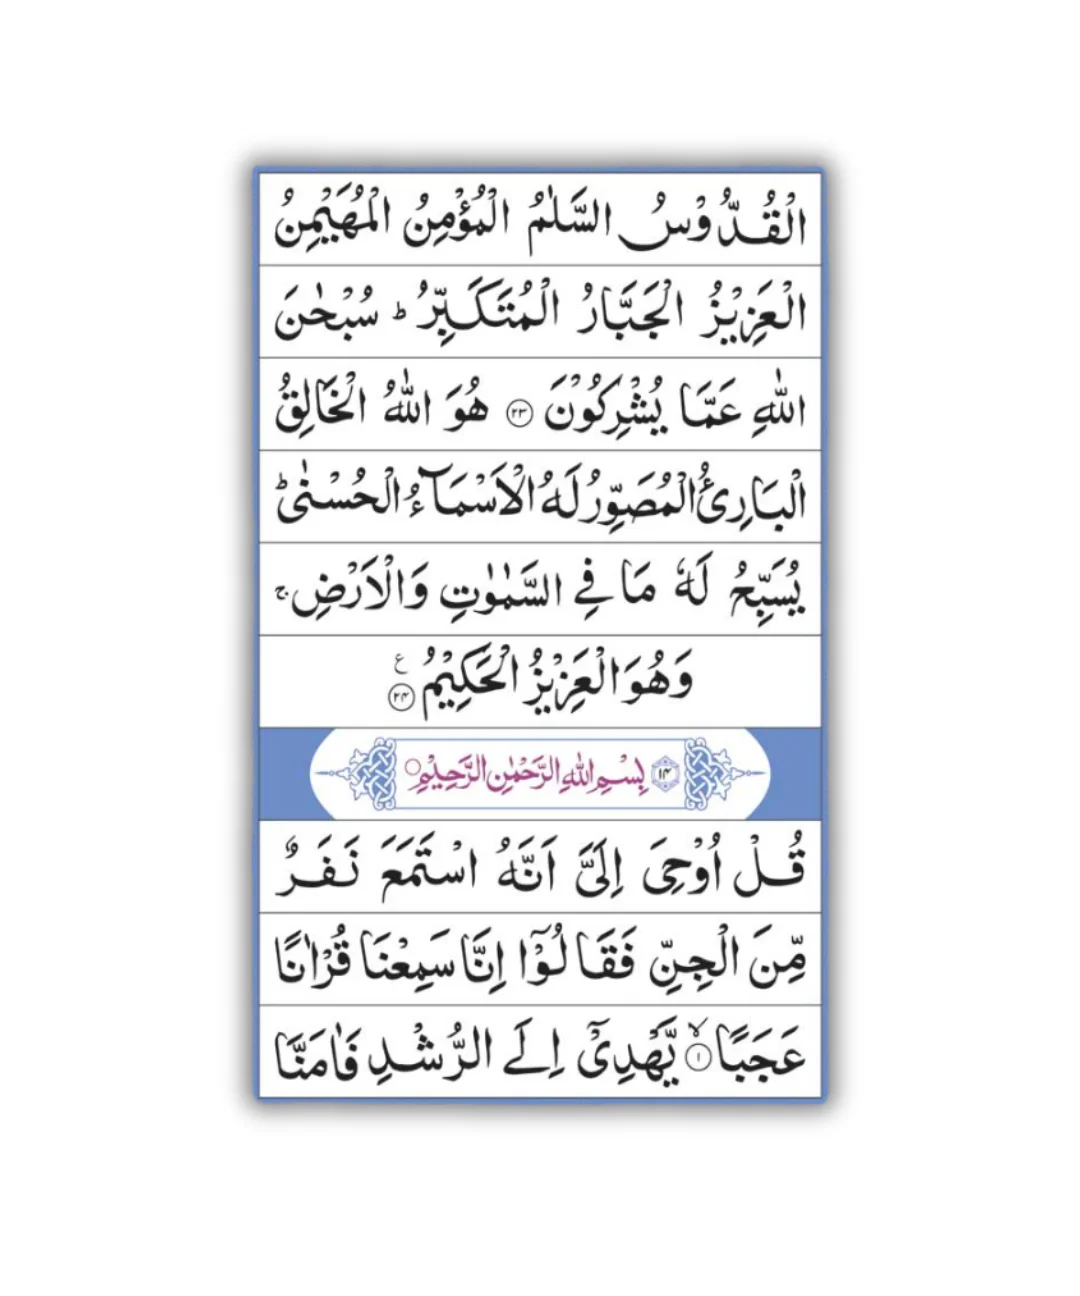 الْقُدُّوْسُ السَّلٰمُ الْمُؤْمِنُ الْمُهَيْمِنُ
الْعَزِيْزُ الْجَبَّارُ الْمُتَكَبِّرُ ؕ سُبْحٰنَ
اللّٰهِ عَمَّا يُشْرِكُوْنَ ۲۳ هُوَ اللّٰهُ الْخَالِقُ
الْبَارِئُ الْمُصَوِّرُ لَهُ الْاَسْمَآءُ الْحُسْنٰى ؕ
يُسَبِّحُ لَهٗ مَا فِي السَّمٰوٰتِ وَالْاَرْضِ ۚ
وَهُوَ الْعَزِيْزُ الْحَكِيْمُ ۲۴ ع
۱۴ بِسْمِ اللّٰهِ الرَّحْمٰنِ الرَّحِيْمِ
قُلْ اُوْحِيَ اِلَيَّ اَنَّهُ اسْتَمَعَ نَفَرٌ
مِّنَ الْجِنِّ فَقَالُوْٓا اِنَّا سَمِعْنَا قُرْاٰنًا
عَجَبًا ۙ ۱ يَّهْدِيْٓ اِلَى الرُّشْدِ فَاٰمَنَّا